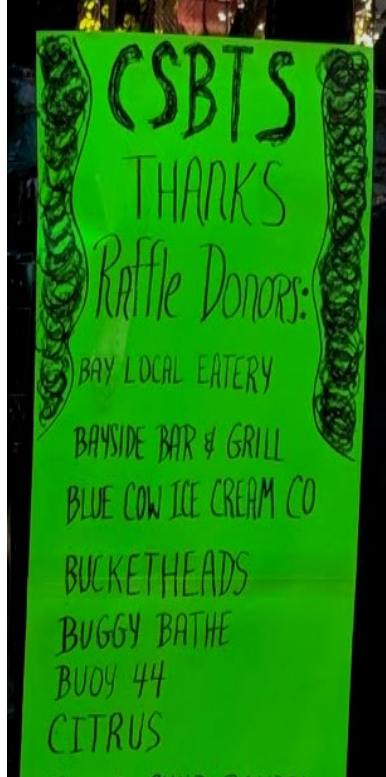 CSBTS
THANKS
Raffle Donors:
BAY LOCAL EATERY
BAYSIDE BAR & GRILL
BLUE COW ICE CREAM CO
BUCKETHEADS
BUGGY BATHE
BUOY 44
CITRUS